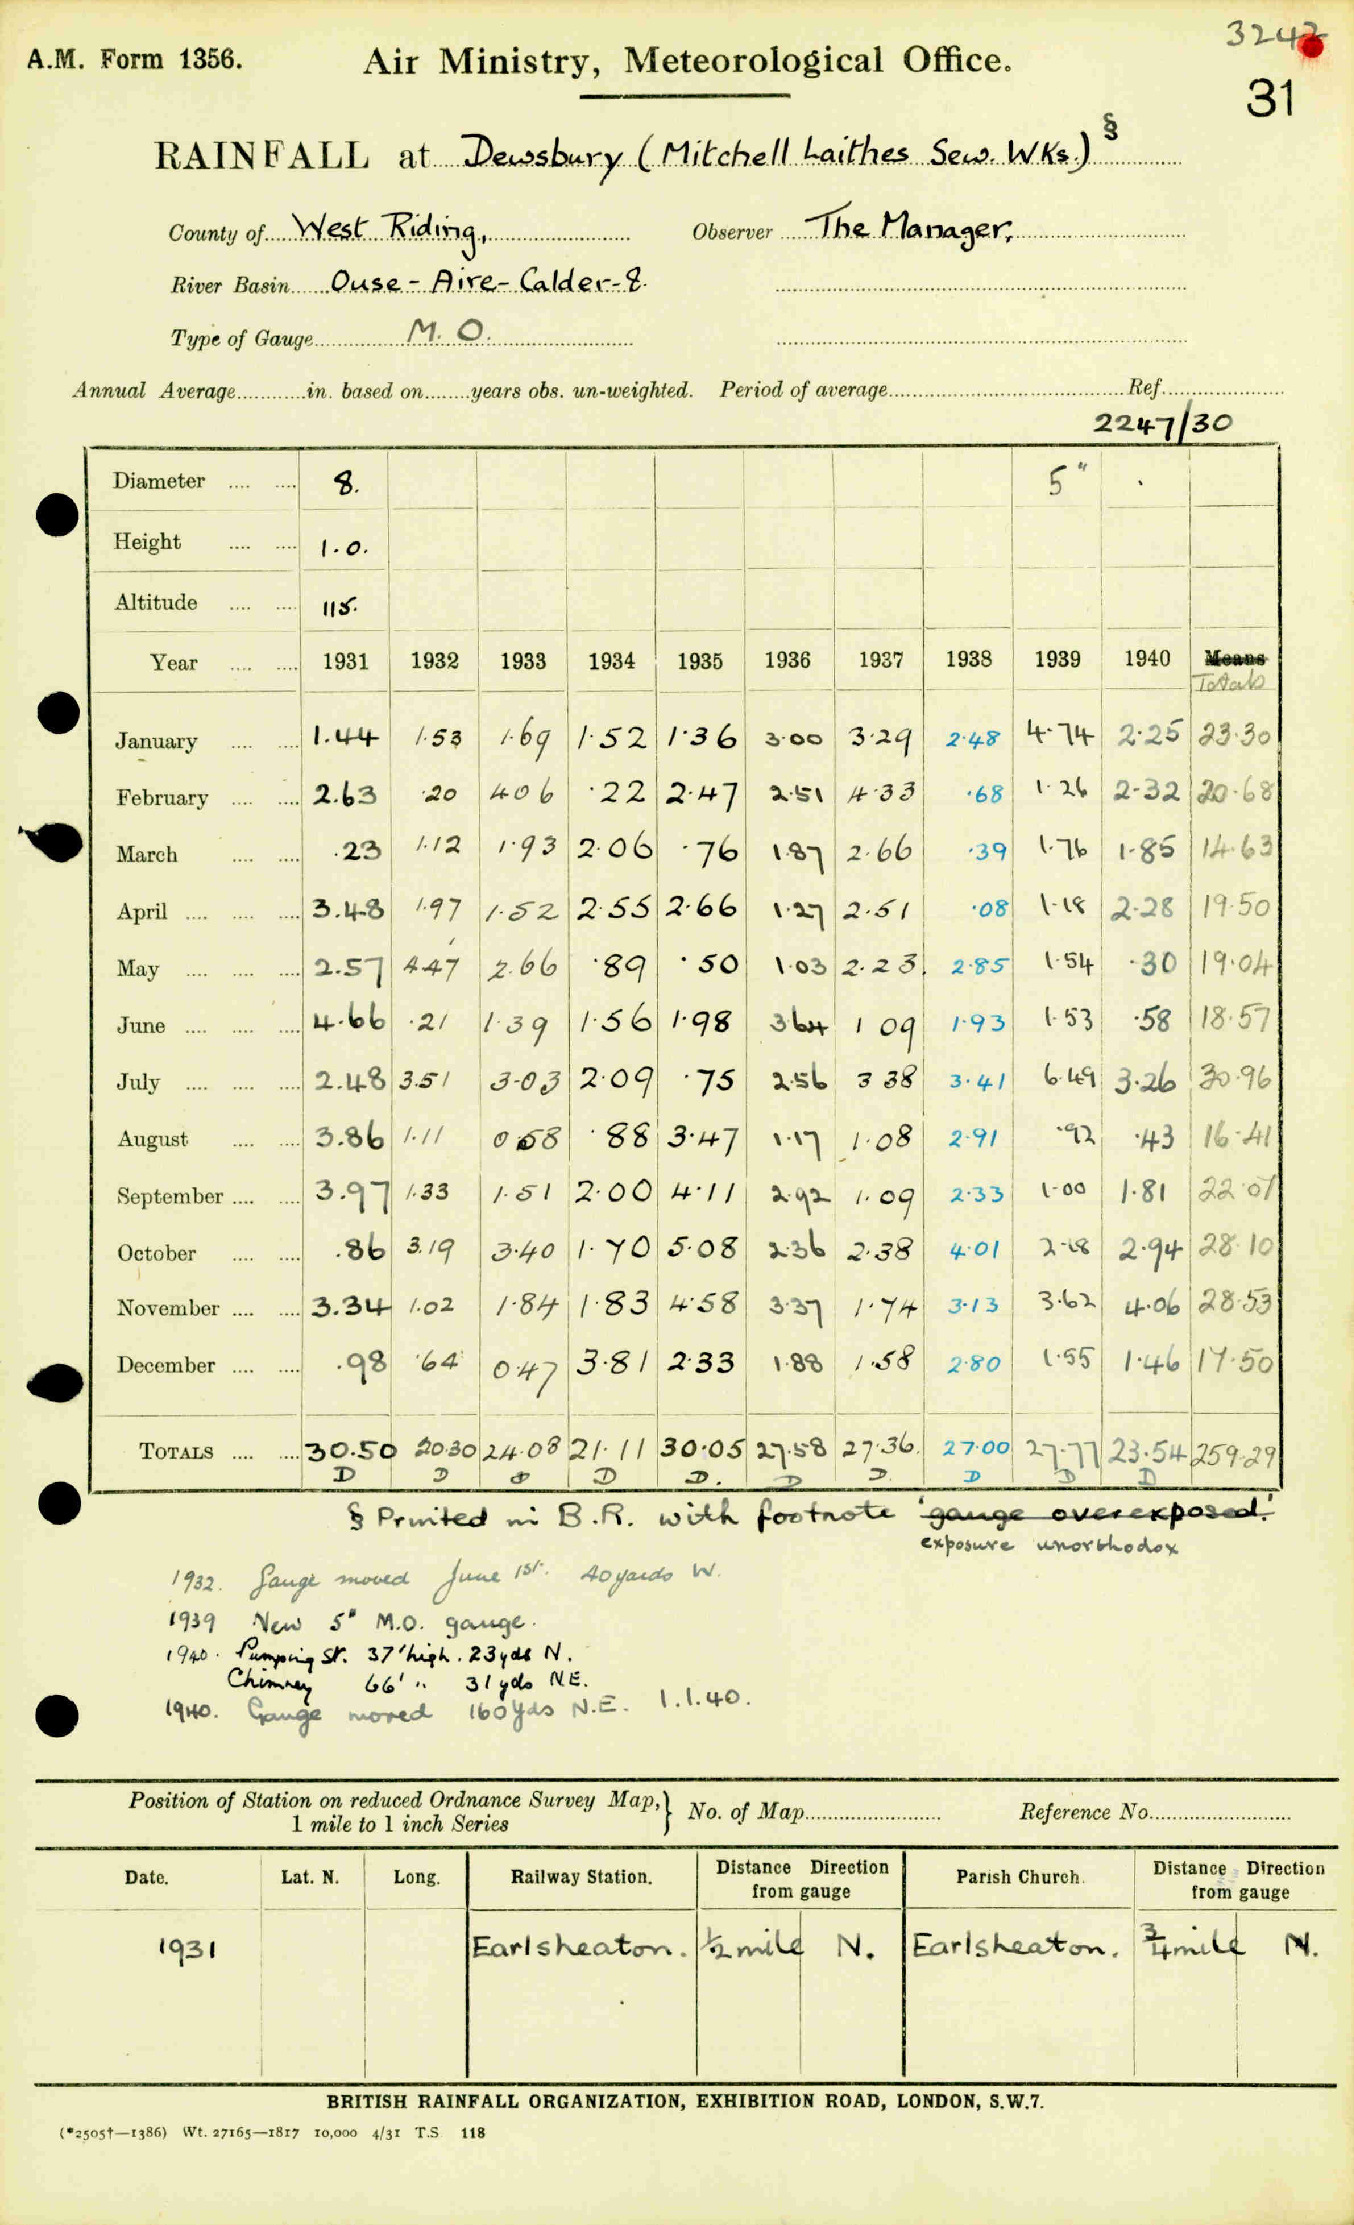 3242
A.M. Form 1356. Air Ministry, Meteorological Office.
31
RAINFALL at Dewsbury (Mitchell Laithes Sew. WKs.) §
County of West Riding, Observer The Manager,
River Basin Ouse - Aire - Calder - 8.
Type of Gauge M. O.
Annual Average in. based on years obs. un-weighted. Period of average Ref.
2247/30
Diameter 8. 5" .
Height 1.0.
Altitude 115.
Year 1931 1932 1933 1934 1935 1936 1937 1938 1939 1940 Means
Totals
January 1.44 1.53 1.69 1.52 1.36 3.00 3.29 2.48 4.74 2.25 23.30
February 2.63 .20 4 06 .22 2.47 2.51 4.33 .68 1.26 2.32 20.68
March .23 1.12 1.93 2.06 .76 1.87 2.66 .39 1.76 1.85 14.63
April 3.48 1.97 1.52 2.55 2.66 1.27 2.51 .08 1.18 2.28 19.50
May 2.57 4.47 2.66 .89 .50 1.03 2.23. 2.85 1.54 .30 19.04
June 4.66 .21 1.39 1.56 1.98 3.64 1 09 1.93 1.53 .58 18.57
July 2.48 3.51 3.03 2.09 .75 2.56 3 38 3.41 6.49 3.26 30.96
August 3.86 1.11 0 58 .88 3.47 1.17 1.08 2.91 .92 .43 16.41
September 3.97 1.33 1.51 2.00 4.11 2.92 1.09 2.33 1.00 1.81 22.07
October .86 3.19 3.40 1.70 5.08 2.36 2.38 4.01 2.18 2.94 28.10
November 3.34 1.02 1.84 1.83 4.58 3.37 1.74 3.13 3.62 4.06 28.53
December .98 .64 0.47 3.81 2.33 1.88 1.58 2.80 1.55 1.46 17.50
TOTALS 30.50 20.30 24.08 21.11 30.05 27.58 27.36. 27.00 27.77 23.54 259.29
D D D D D. D D. D D D
§ Printed in B.R. with footnote 'gauge overexposed.'
exposure unorthodox
1932. Gauge moved June 1st. 40 yards W.
1939 New 5" M.O. gauge.
1940. Pumping St. 37' high. 23 yds N.
Chimney 66' " 31 yds N.E.
1940. Gauge moved 160 yds N.E. 1.1.40.
Position of Station on reduced Ordnance Survey Map, } No. of Map Reference No.
1 mile to 1 inch Series
Date. Lat. N. Long. Railway Station. Distance Direction from gauge Parish Church. Distance Direction from gauge
1931 Earlsheaton. ½ mile N. Earlsheaton. ¾ mile N.
BRITISH RAINFALL ORGANIZATION, EXHIBITION ROAD, LONDON, S.W.7.
(*2505†—1386) Wt. 27165—1817 10,000 4/31 T.S 118